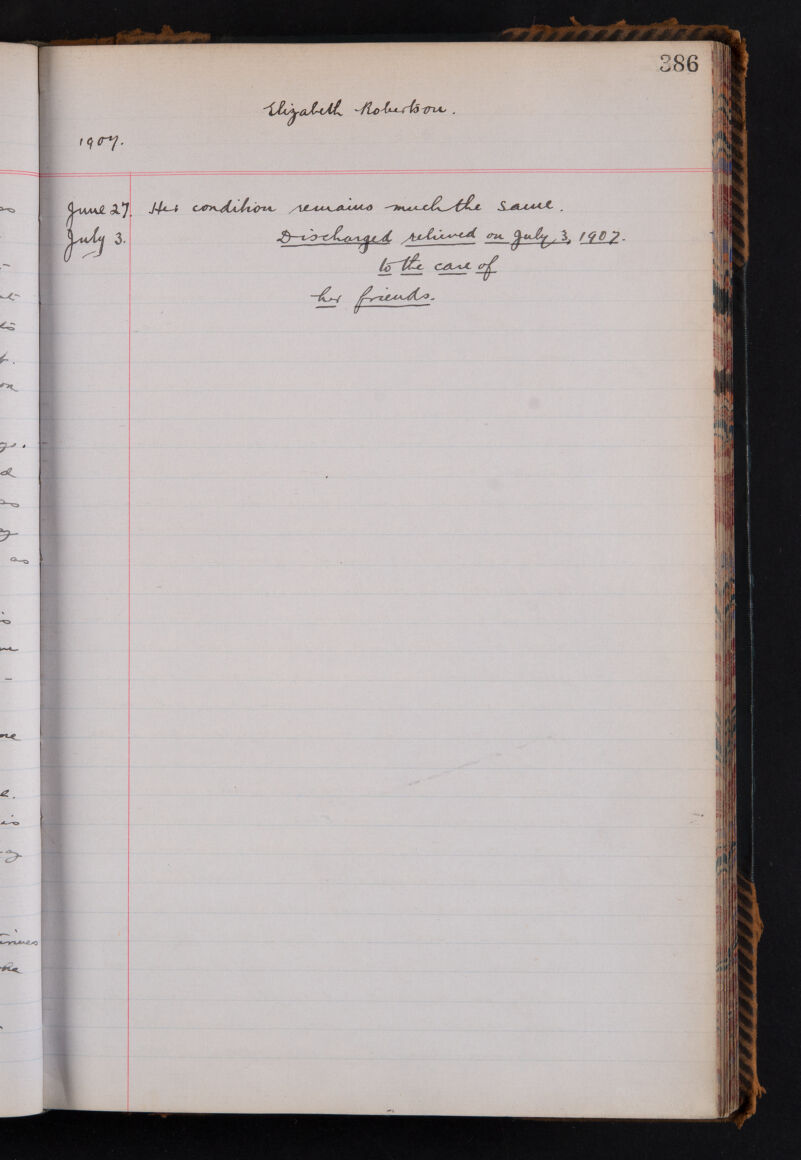 386
Elizabeth Robertson.
1907.
June 27. Her condition remains much the same.
July 3. Discharged relieved on July, 3, 1907.
to the care of
her friends.